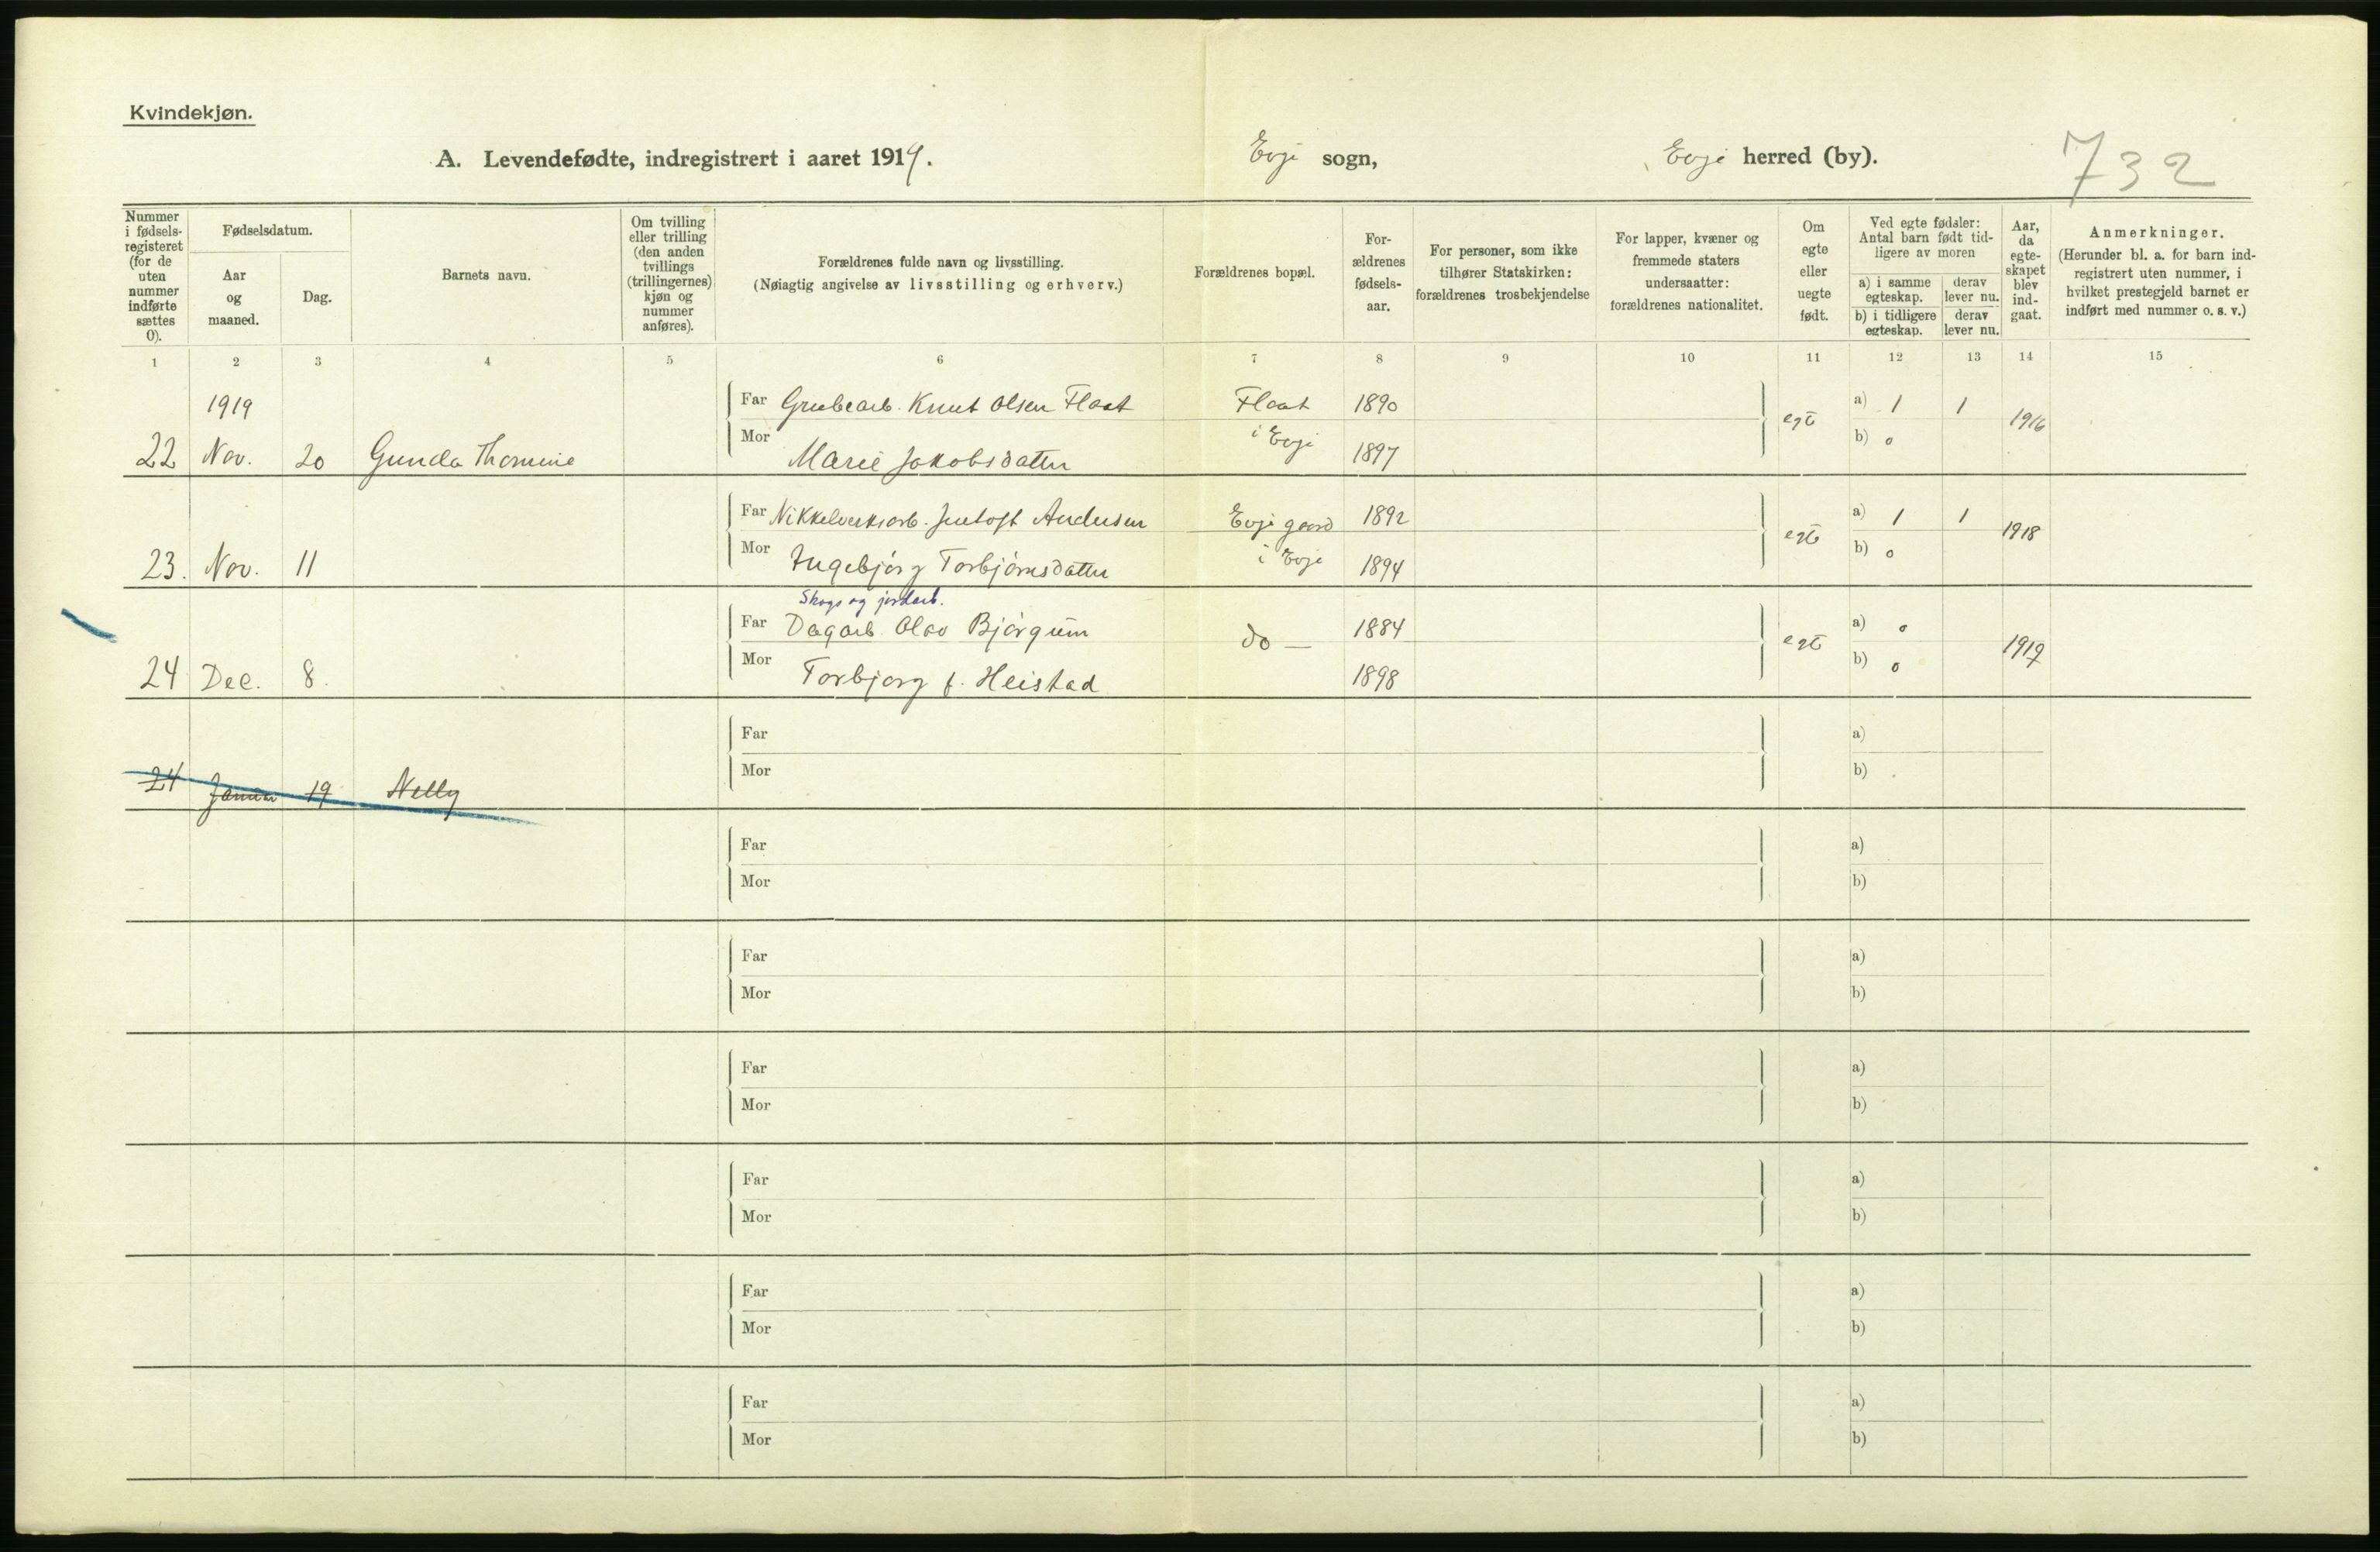 Kvindekjøn.
A. Levendefødte, indregistrert i aaret 1919. Evje sogn, Evje herred (by). 732
Nummer i fødsels-registeret (for de uten nummer indførte sættes 0).
Fødselsdatum.
Aar og maaned.
Dag.
Barnets navn.
Om tvilling eller trilling (den anden tvillings (trillingernes) kjøn og nummer anføres).
Forældrenes fulde navn og livsstilling.
(Nøiagtig angivelse av livsstilling og erhverv.)
Forældrenes bopæl.
For-ældrenes fødsels-aar.
For personer, som ikke tilhører Statskirken: forældrenes trosbekjendelse
For lapper, kvæner og fremmede staters undersaatter: forældrenes nationalitet.
Om egte eller uegte født.
Ved egte fødsler: Antal barn født tid-ligere av moren
a) i samme egteskap.
derav lever nu.
b) i tidligere egteskap.
derav lever nu.
Aar, da egte-skapet blev ind-gaat.
Anmerkninger.
(Herunder bl. a. for barn ind-registrert uten nummer, i hvilket prestegjeld barnet er indført med nummer o. s. v.)
1 2 3 4 5 6 7 8 9 10 11 12 13 14 15
1919 Far Grubearb. Knut Olsen Flaat Flaat 1890 a) 1 1
22 Nov. 20 Gunda Thomine Mor Marie Jakobsdatter i Evje 1897 egte b) 0 1916
Far Nikkelverksarb. Andersen Evje gaard 1892 a) 1 1
23. Nov. 11 Mor Ingebjørg Torbjørnsdatter i Evje 1894 egte b) 0 1918
Skogs og jordarb.
Far Dagarb. Olav Bjørgum do — 1884 a) 0
24 Dec. 8. Mor Torbjørg f. Heistad 1898 egte b) 0 1919
Far a)
24 Januar 19 Nelly Mor b)
Far a)
Mor b)
Far a)
Mor b)
Far a)
Mor b)
Far a)
Mor b)
Far a)
Mor b)
Far a)
Mor b)